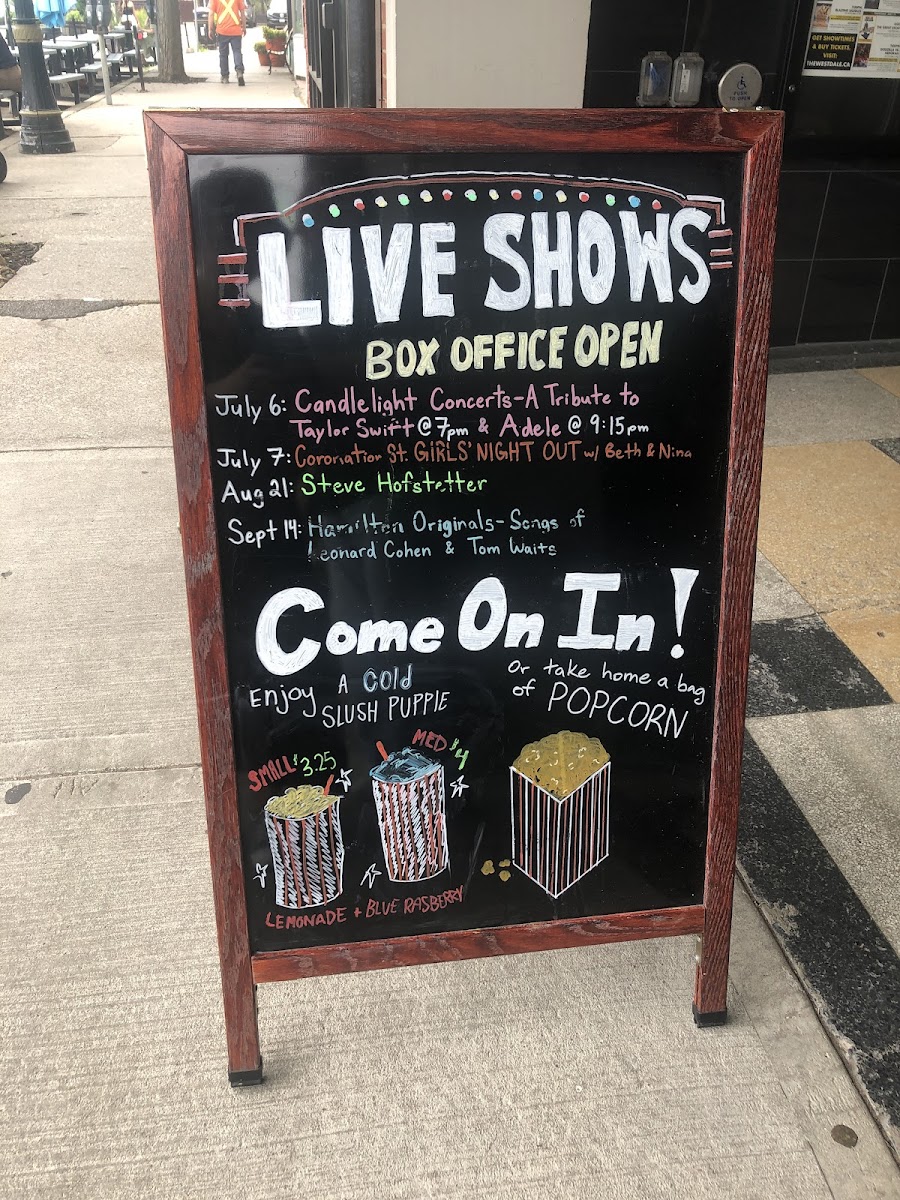 GET SHOWTIMES
& BUY TICKETS.
VISIT:
THEWESTDALE.CA
PUSH
TO OPEN
LIVE SHOWS
BOX OFFICE OPEN
July 6: Candlelight Concerts-A Tribute to
Taylor Swift @ 7pm & Adele @ 9:15pm
July 7: Coronation St. GIRLS' NIGHT OUT w/ Beth & Nina
Aug 21: Steve Hofstetter
Sept 14: Hamilton Originals-Songs of
Leonard Cohen & Tom Waits
Come On In!
Enjoy A COld
SLUSH PUPPIE
Or take home a bag
of POPCORN
SMALL $3.25
MED $4
LEMONADE + BLUE RASBERRY